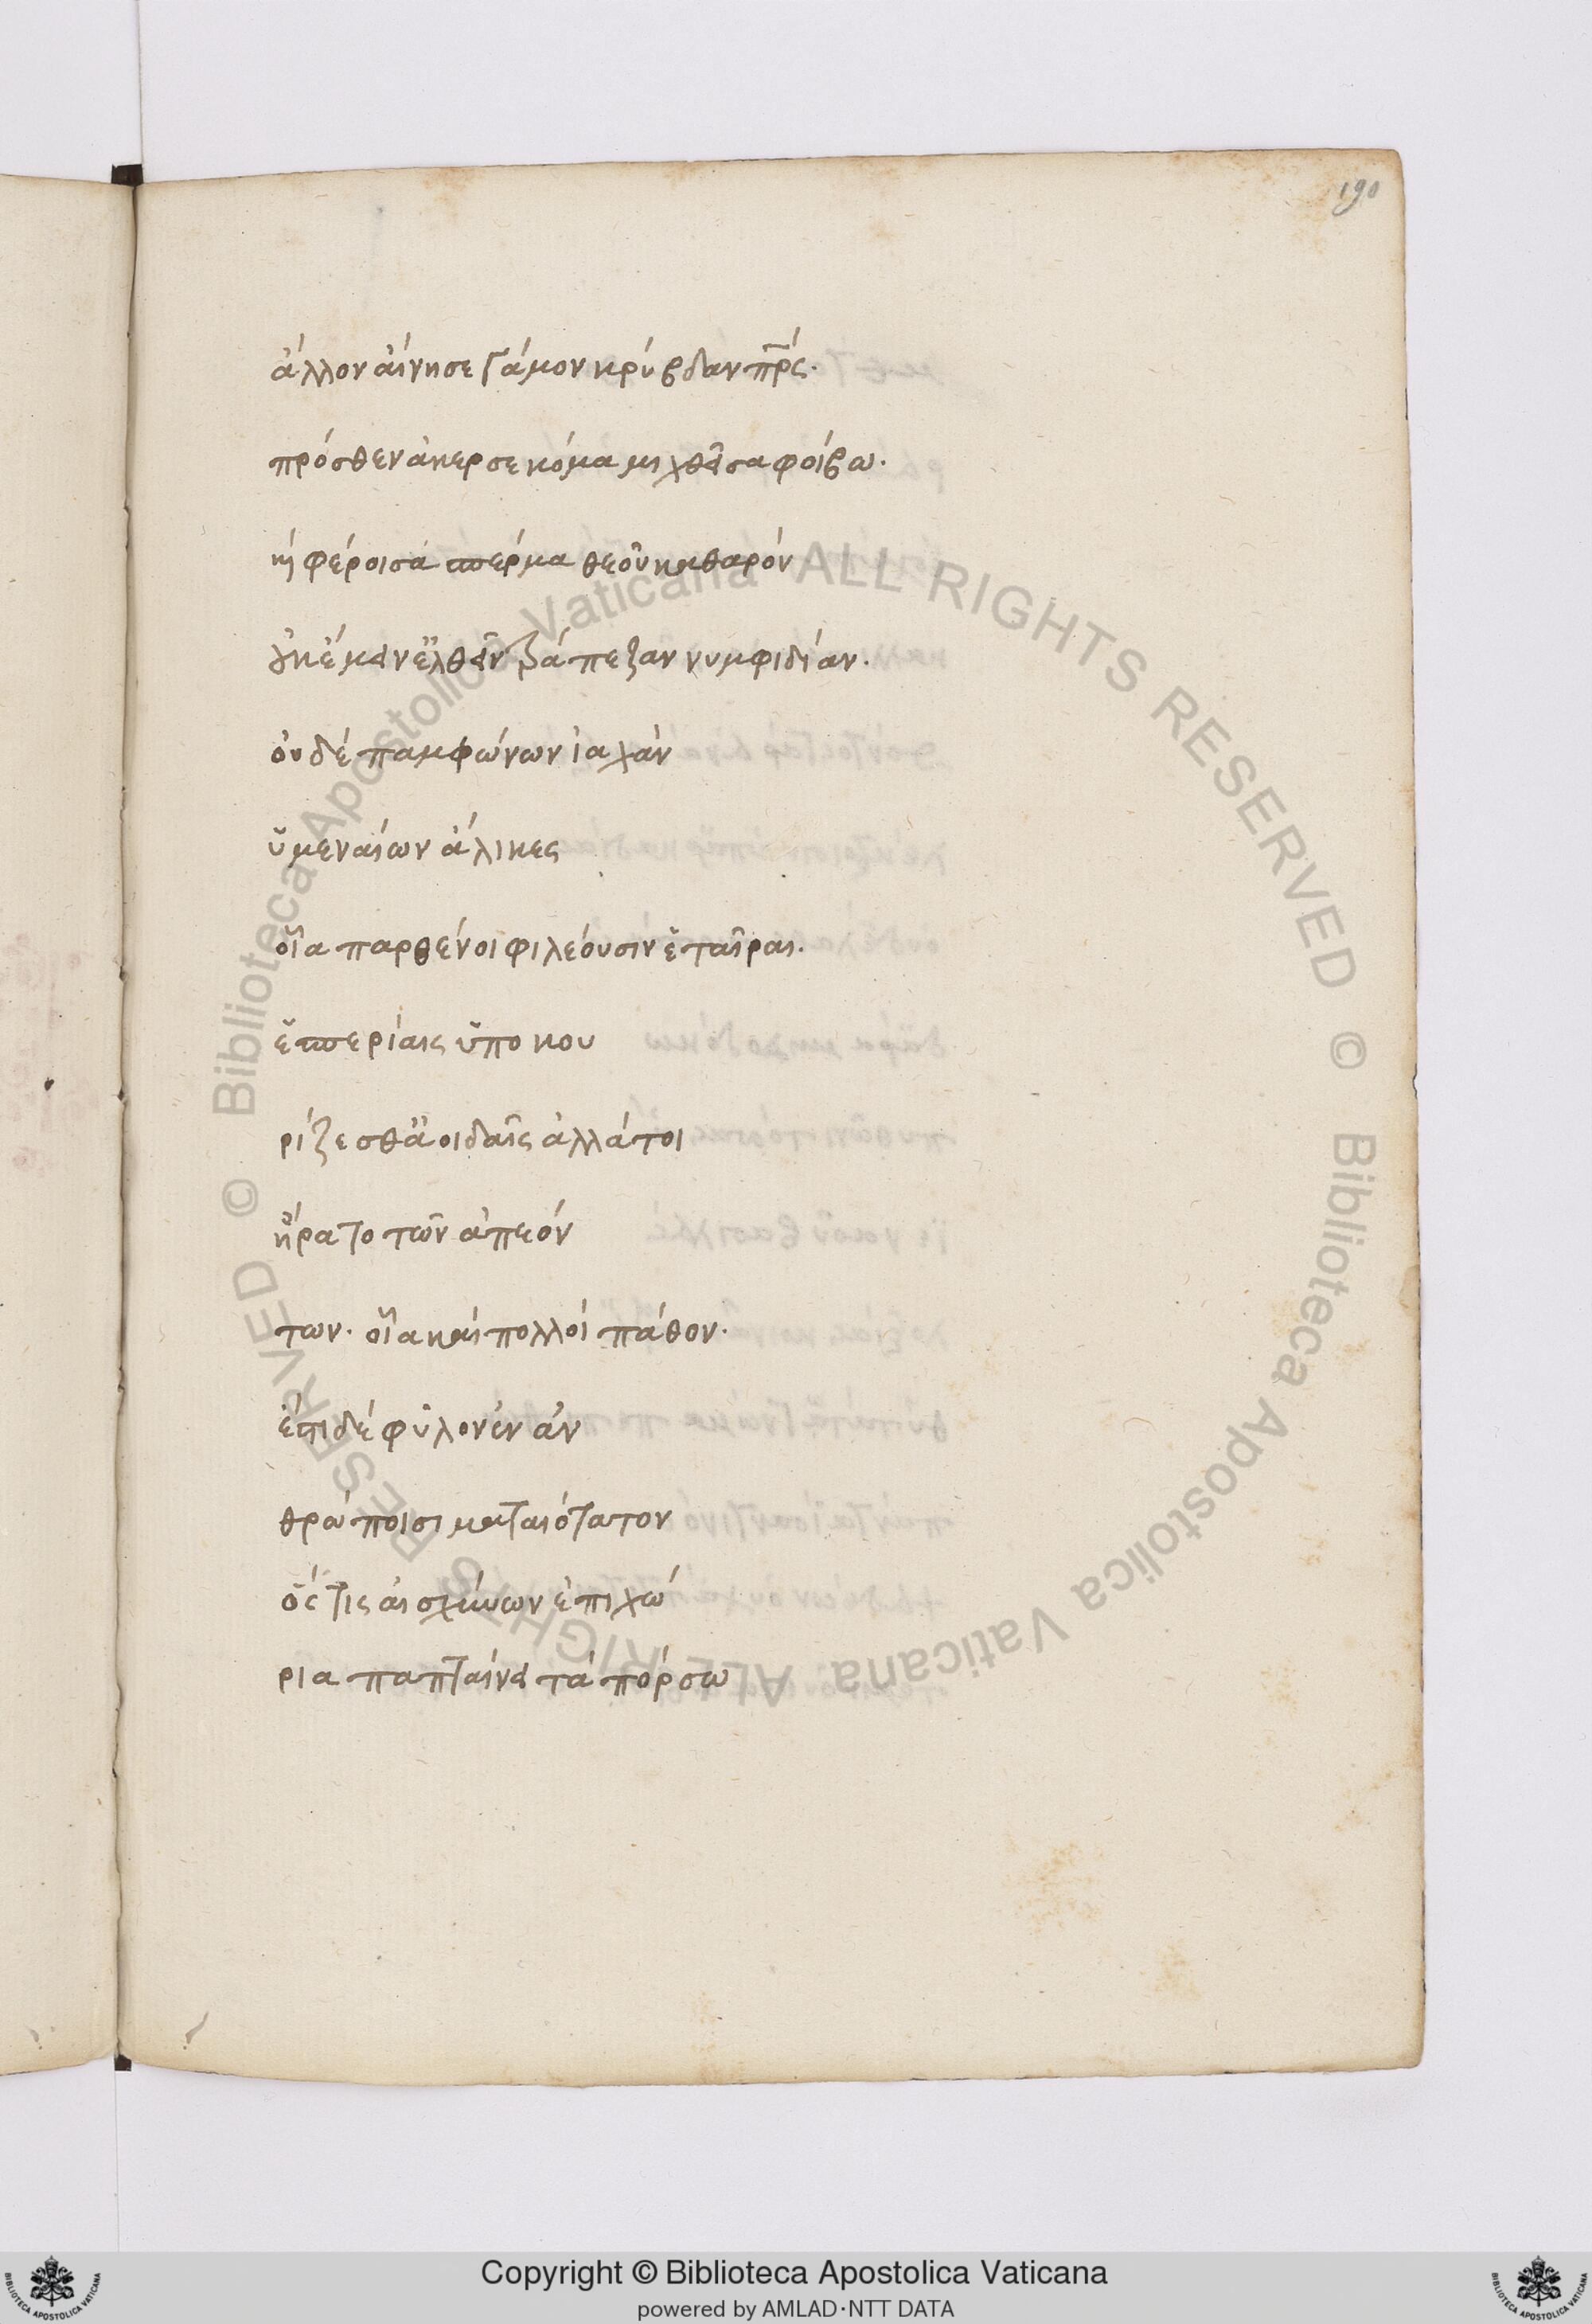 190
ἄλλον αἴνησε γάμον κρύβδαν πρς.
πρόσθεν ἀκερσεκόμα μιχθεῖσα φοίβω.
κὴ φέροισα σπέρμα θεοῦ καθαρόν
οὐκ ἔμεινε ἐλθεῖν τράπεζαν νυμφιδίαν.
οὐδέ παμφώνων ἰαχὰν
ὑμεναίων ἅλικες
οἷα παρθένοι φιλέουσιν ἑταῖραι.
ἑσπερίαις ὑποκου
ρίζεσθ' ἀοιδαῖς ἀλλάτοι
ἤρατο τῶν ἀπεόν
των. οἷα καὶ πολλοί πάθον.
ἔστι δέ φῦλον ἐν ἀν
θρώποισι ματαιότατον
ὅς τις αἰσχύνων ἐπιχώ
ρια παπταίνει τὰ πόρσω
© Biblioteca Apostolica Vaticana ALL RIGHTS RESERVED © Biblioteca Apostolica Vaticana ALL RIGHTS RESERVED
Copyright © Biblioteca Apostolica Vaticana
powered by AMLAD·NTT DATA
BIBLIOTECA APOSTOLICA VATICANA
BIBLIOTECA APOSTOLICA VATICANA